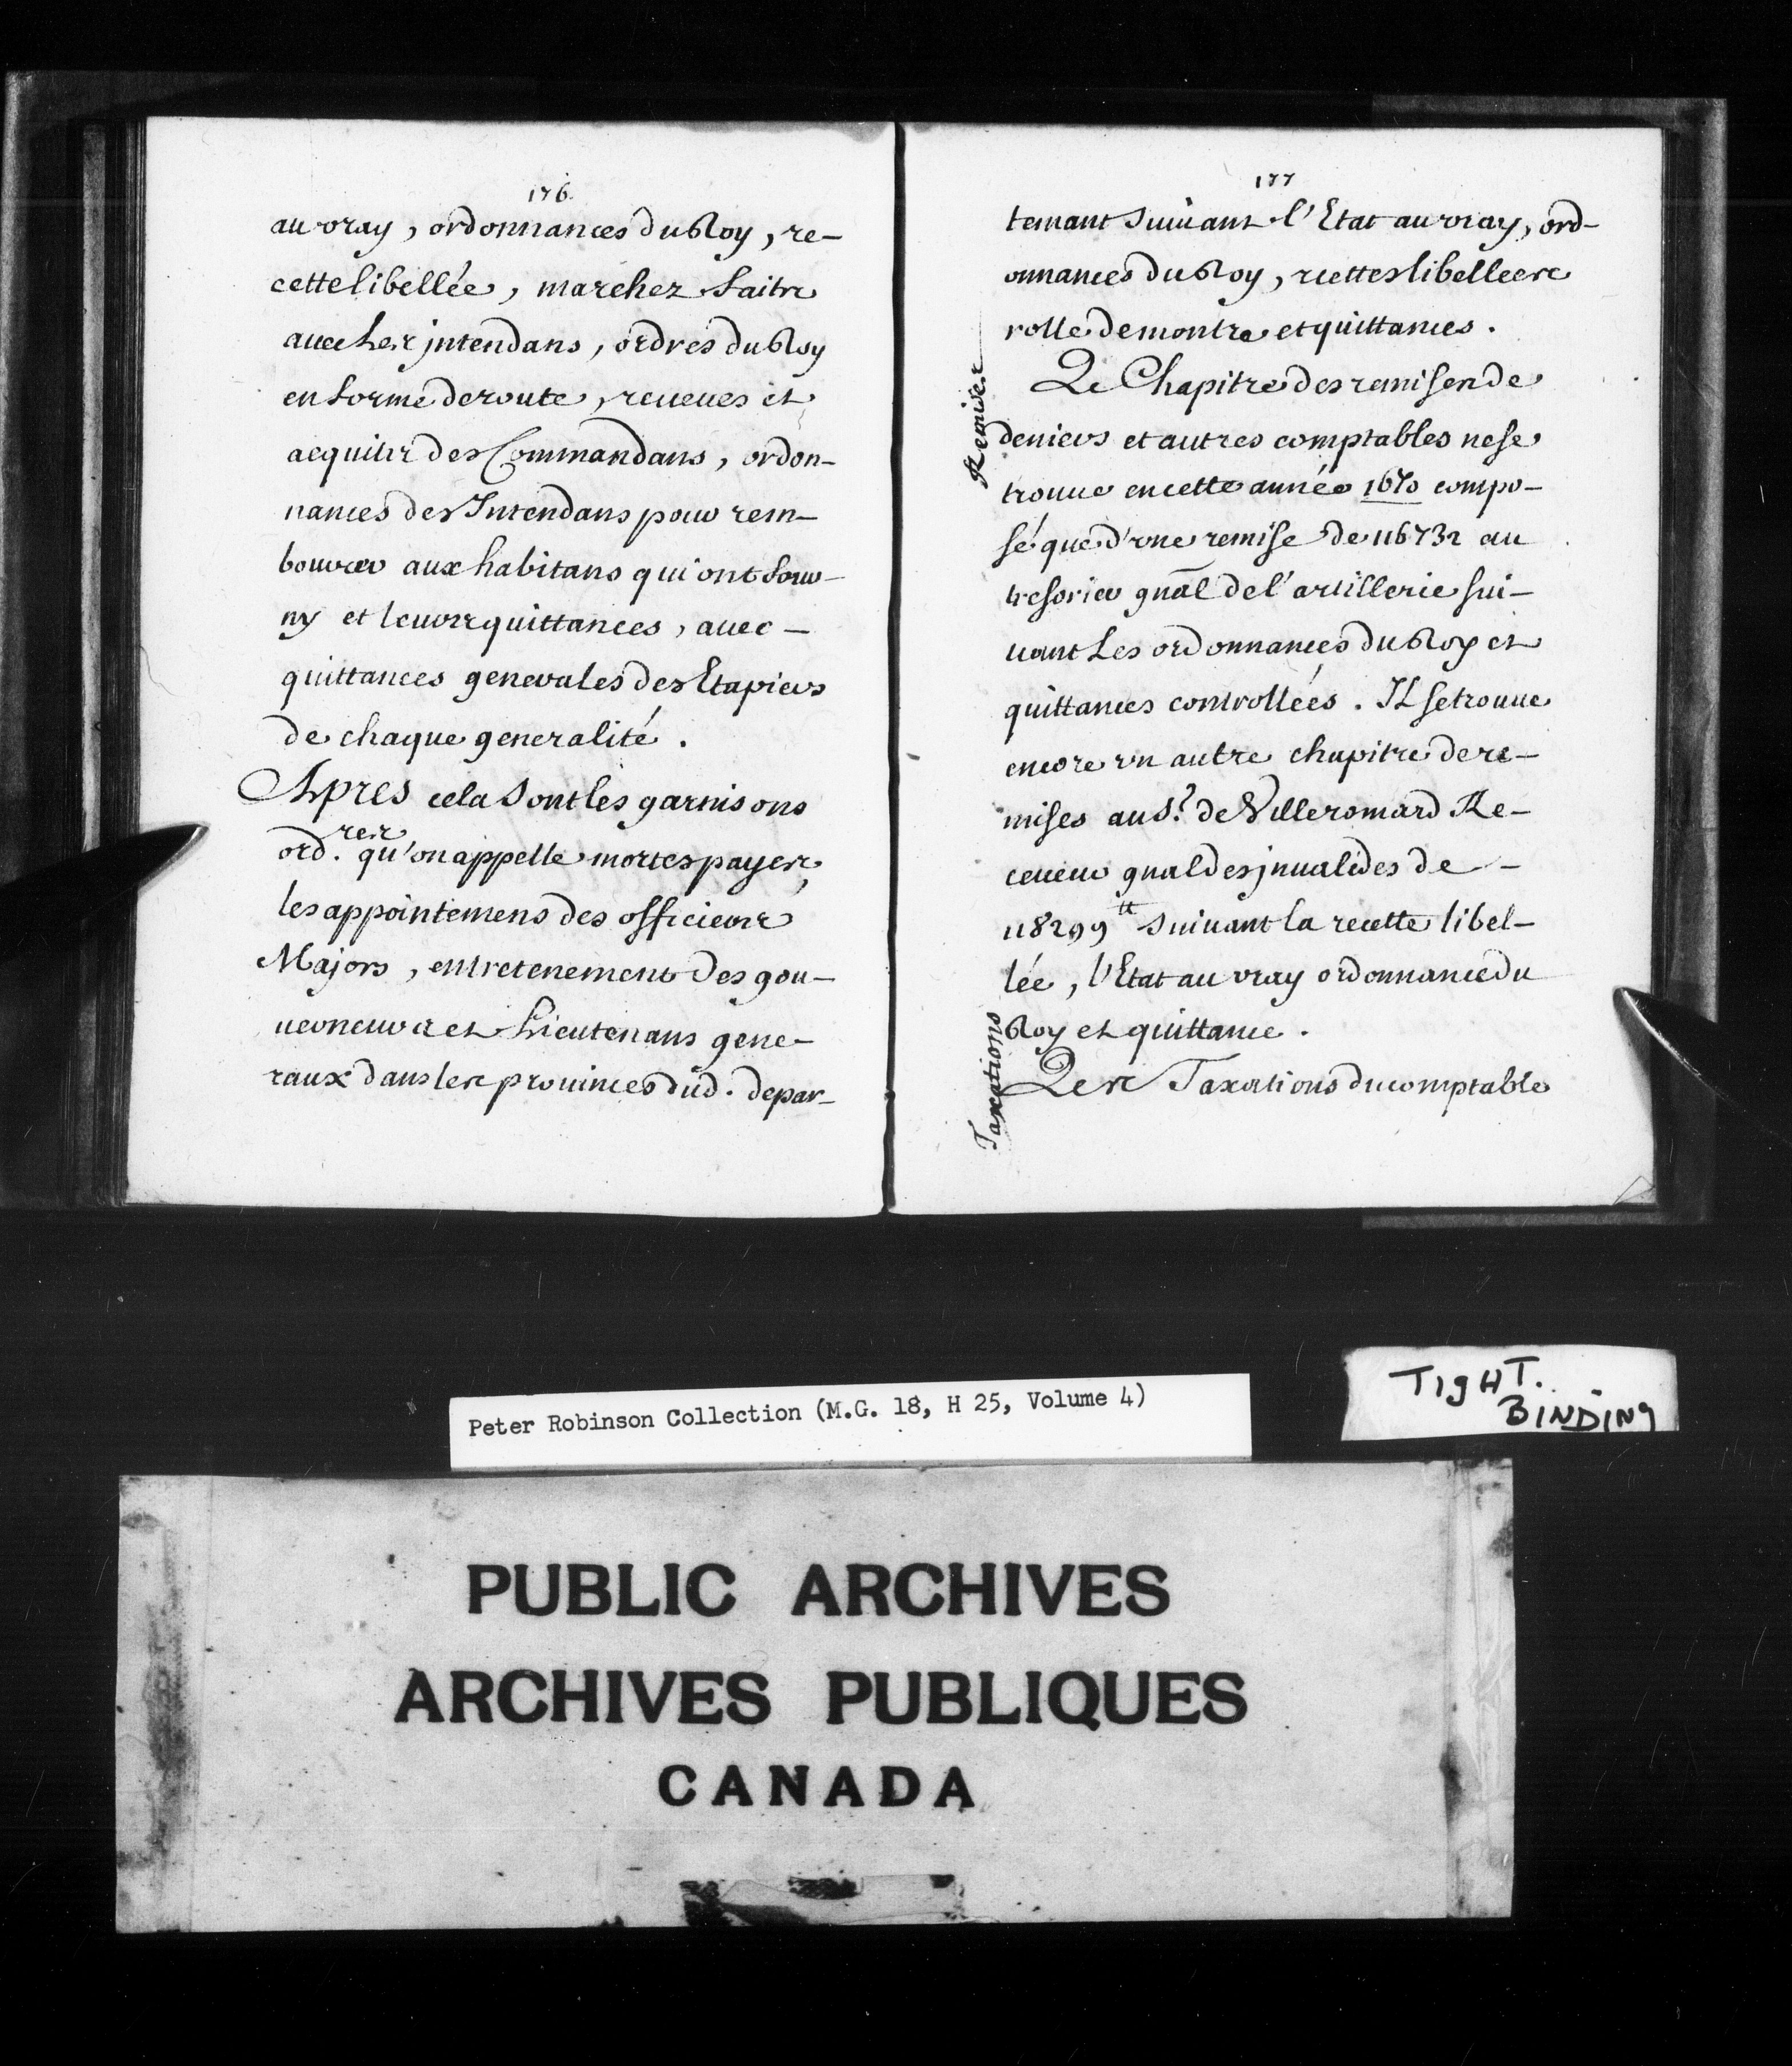 176.
au vray, ordonnances du Roy, re-
cette libellée, marchez faits
avec les intendans, ordres du Roy
en forme de route, reveues et
acquits des Commandans, ordon-
nances des Intendans pour rem-
bourcer aux habitans qui ont four-
ny et leurs quittances, avec -
quittances generales des Etapiers
de chaque generalité.
Apres cela sont les garnisons
ord.res qu'on appelle mortes payes,
les appointemens des officiers
Majors, entretenement des gou-
verneurs et Lieutenans gene-
raux dans les provinces dud. depar-
177
temant suivant l'Etat au vray, ord-
onnances du Roy, recettes libellees
rolle de montre et quittances.
Remises
Le Chapitre des remises de
deniers et autres comptables ne se
trouve en cette année 1670 compo-
sé que d'vne remise de 116732 au
tresorier gnãl de l'artillerie sui-
vant Les ordonnances du Roy et
quittances controllées. Il se trouve
encore vn autre chapitre de re-
mises au S.r de Villeromard Re-
ceveur gnal des jnvalides de -
118299 tt suivant la recette libel-
lée, l'Etat au vray ordonnance du
Roy et quittance.
Taxations
Les Taxations du comptable
TIGHT.
BINDING
Peter Robinson Collection (M.G. 18, H 25, Volume 4)
PUBLIC ARCHIVES
ARCHIVES PUBLIQUES
CANADA